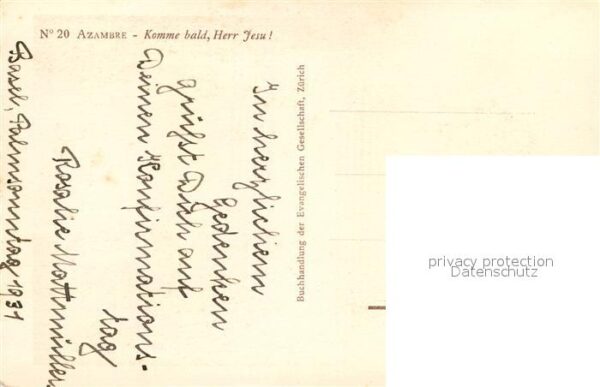 Nº 20 AZAMBRE - Komme bald, Herr Jesu!
In herzlichem
Gedenken
grüßt Dich auf
Deinen Konfirmations-
tag
Rosalie Mattmüller
Basel, Palmsonntag 1931
Buchhandlung der Evangelischen Gesellschaft, Zürich
privacy protection
Datenschutz